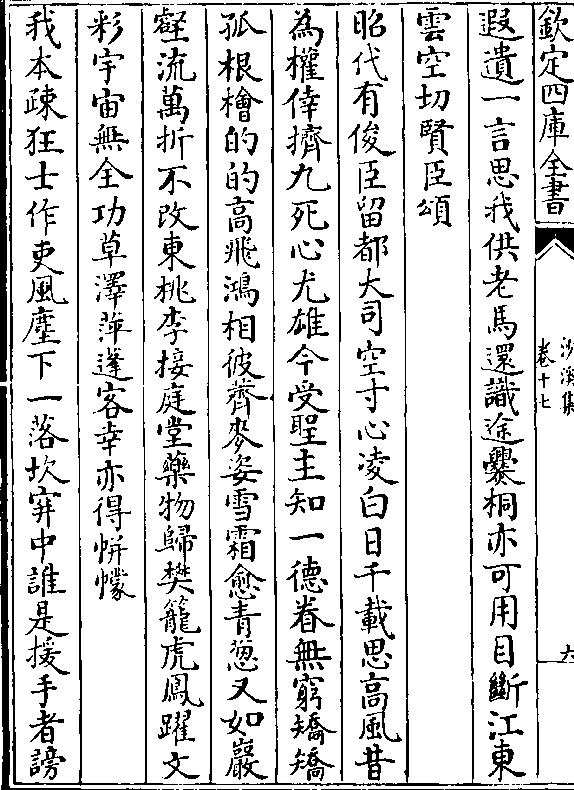 欽定四庫全書
沙溪集
卷十七
六
遐遺一言思我供老馬還識途爨桐亦可用目斷江東
雲空切賢臣頌
昭代有俊臣留都大司空寸心凌白日千載思高風昔
為權倖擠九死心尤雄今受聖主知一德眷無窮矯矯
孤根檜的的高飛鴻相彼薺麥姿雪霜愈青蔥又如巖
壑流萬折不改東桃李接庭堂藥物歸樊籠虎鳳躍文
彩宇宙無全功草澤萍逢客幸亦得帡幪
我本疎狂士作吏風塵下一落坎穽中誰是援手者謗